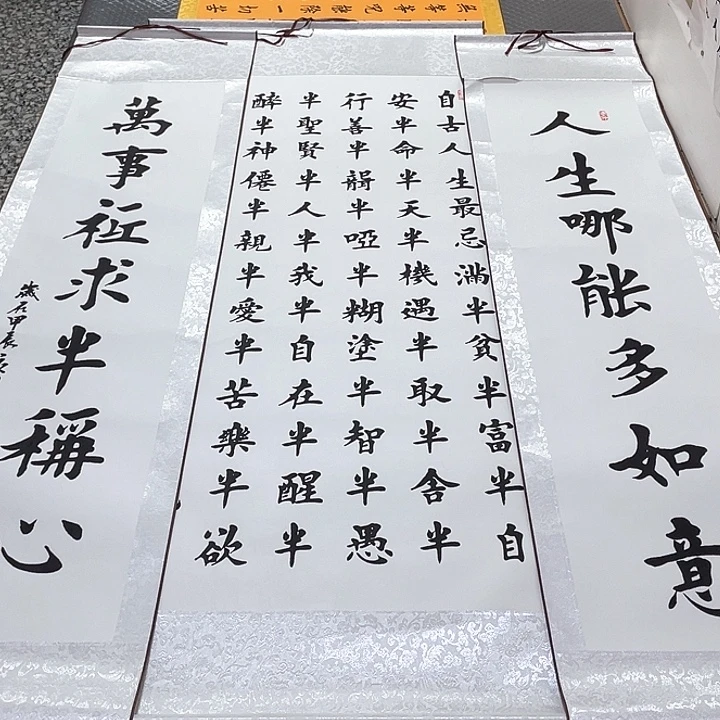 等等咒能除一切苦
人生哪能多如意
自古人生最忌滿半貧半富半自
安半命半天半機遇半取半舍半
行善半聾半啞半糊塗半智半愚
半聖賢半人半我半自在半醒半
醉半神僊半親半愛半苦樂半欲
萬事祇求半稱心
歲在甲辰